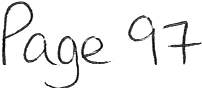 Page 97